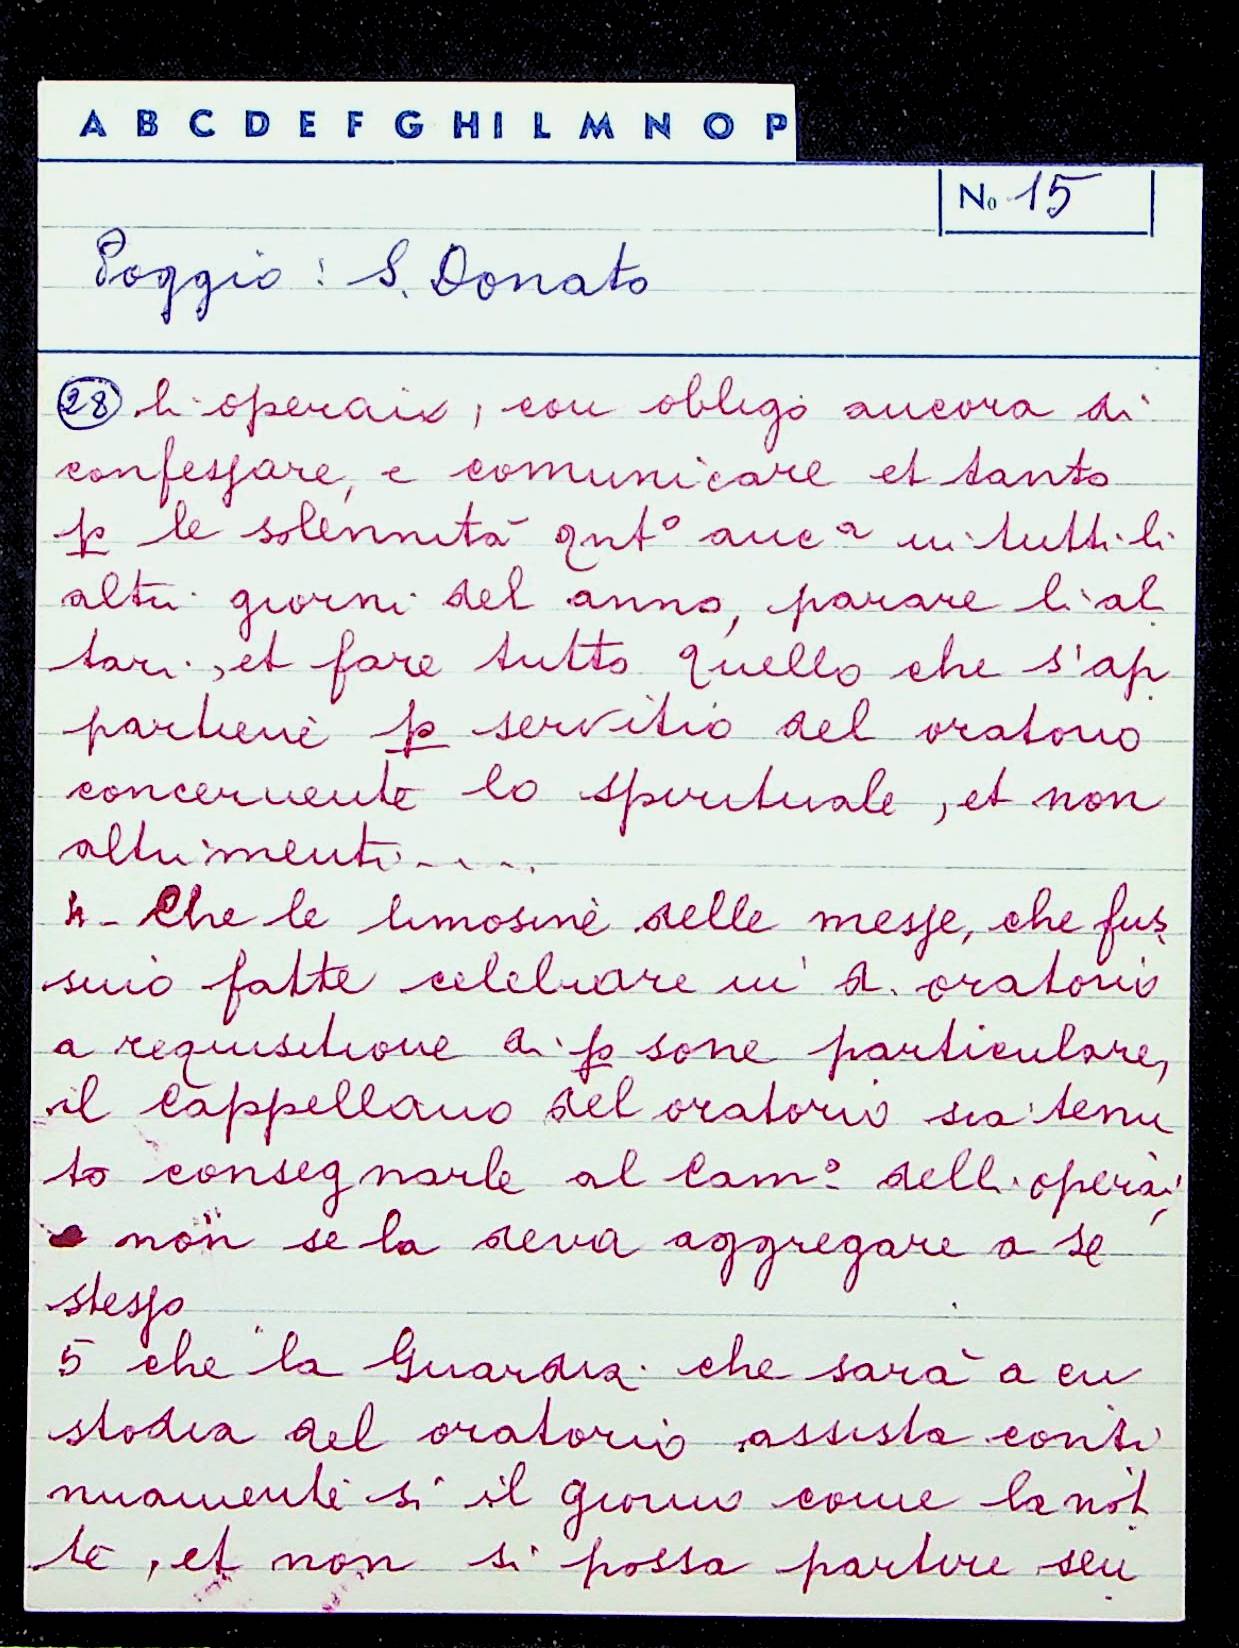 A B C D E F G H I L M N O P
No 15
Poggio: S. Donato
28 li operaii, con obligo ancora di
confessare, e comunicare et tanto
p le solennità qnto anca in tutti li
altri giorni del anno, parare li al
tari, et fare tutto quello che s'ap
partiene p servitio del oratorio
concernente lo spirituale, et non
altrimenti....
4- Che le limosine delle messe, che fus
sino fatte celebrare in d. oratorio
a requisitione di psone particulare,
il Cappellano del oratorio sia tenu
to consegnarle al Camo delli operai,
non se la deva aggregare a se
stesso
5 che la Guardia che sarà a cu
stodia del oratorio assista conti
nuamente sì il giorno come la not
te, et non si possa partire sen